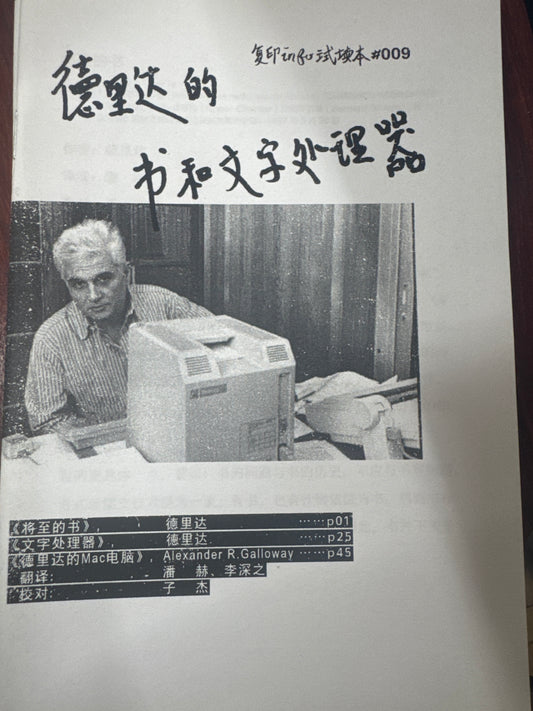 复印机和试读本#009
德里达的
书和文字处理器
《将至的书》, 德里达 ……p01
《文字处理器》, 德里达 ……p25
《德里达的Mac电脑》, Alexander R.Galloway ……p45
翻译: 潘 赫、李深之
校对: 子 杰